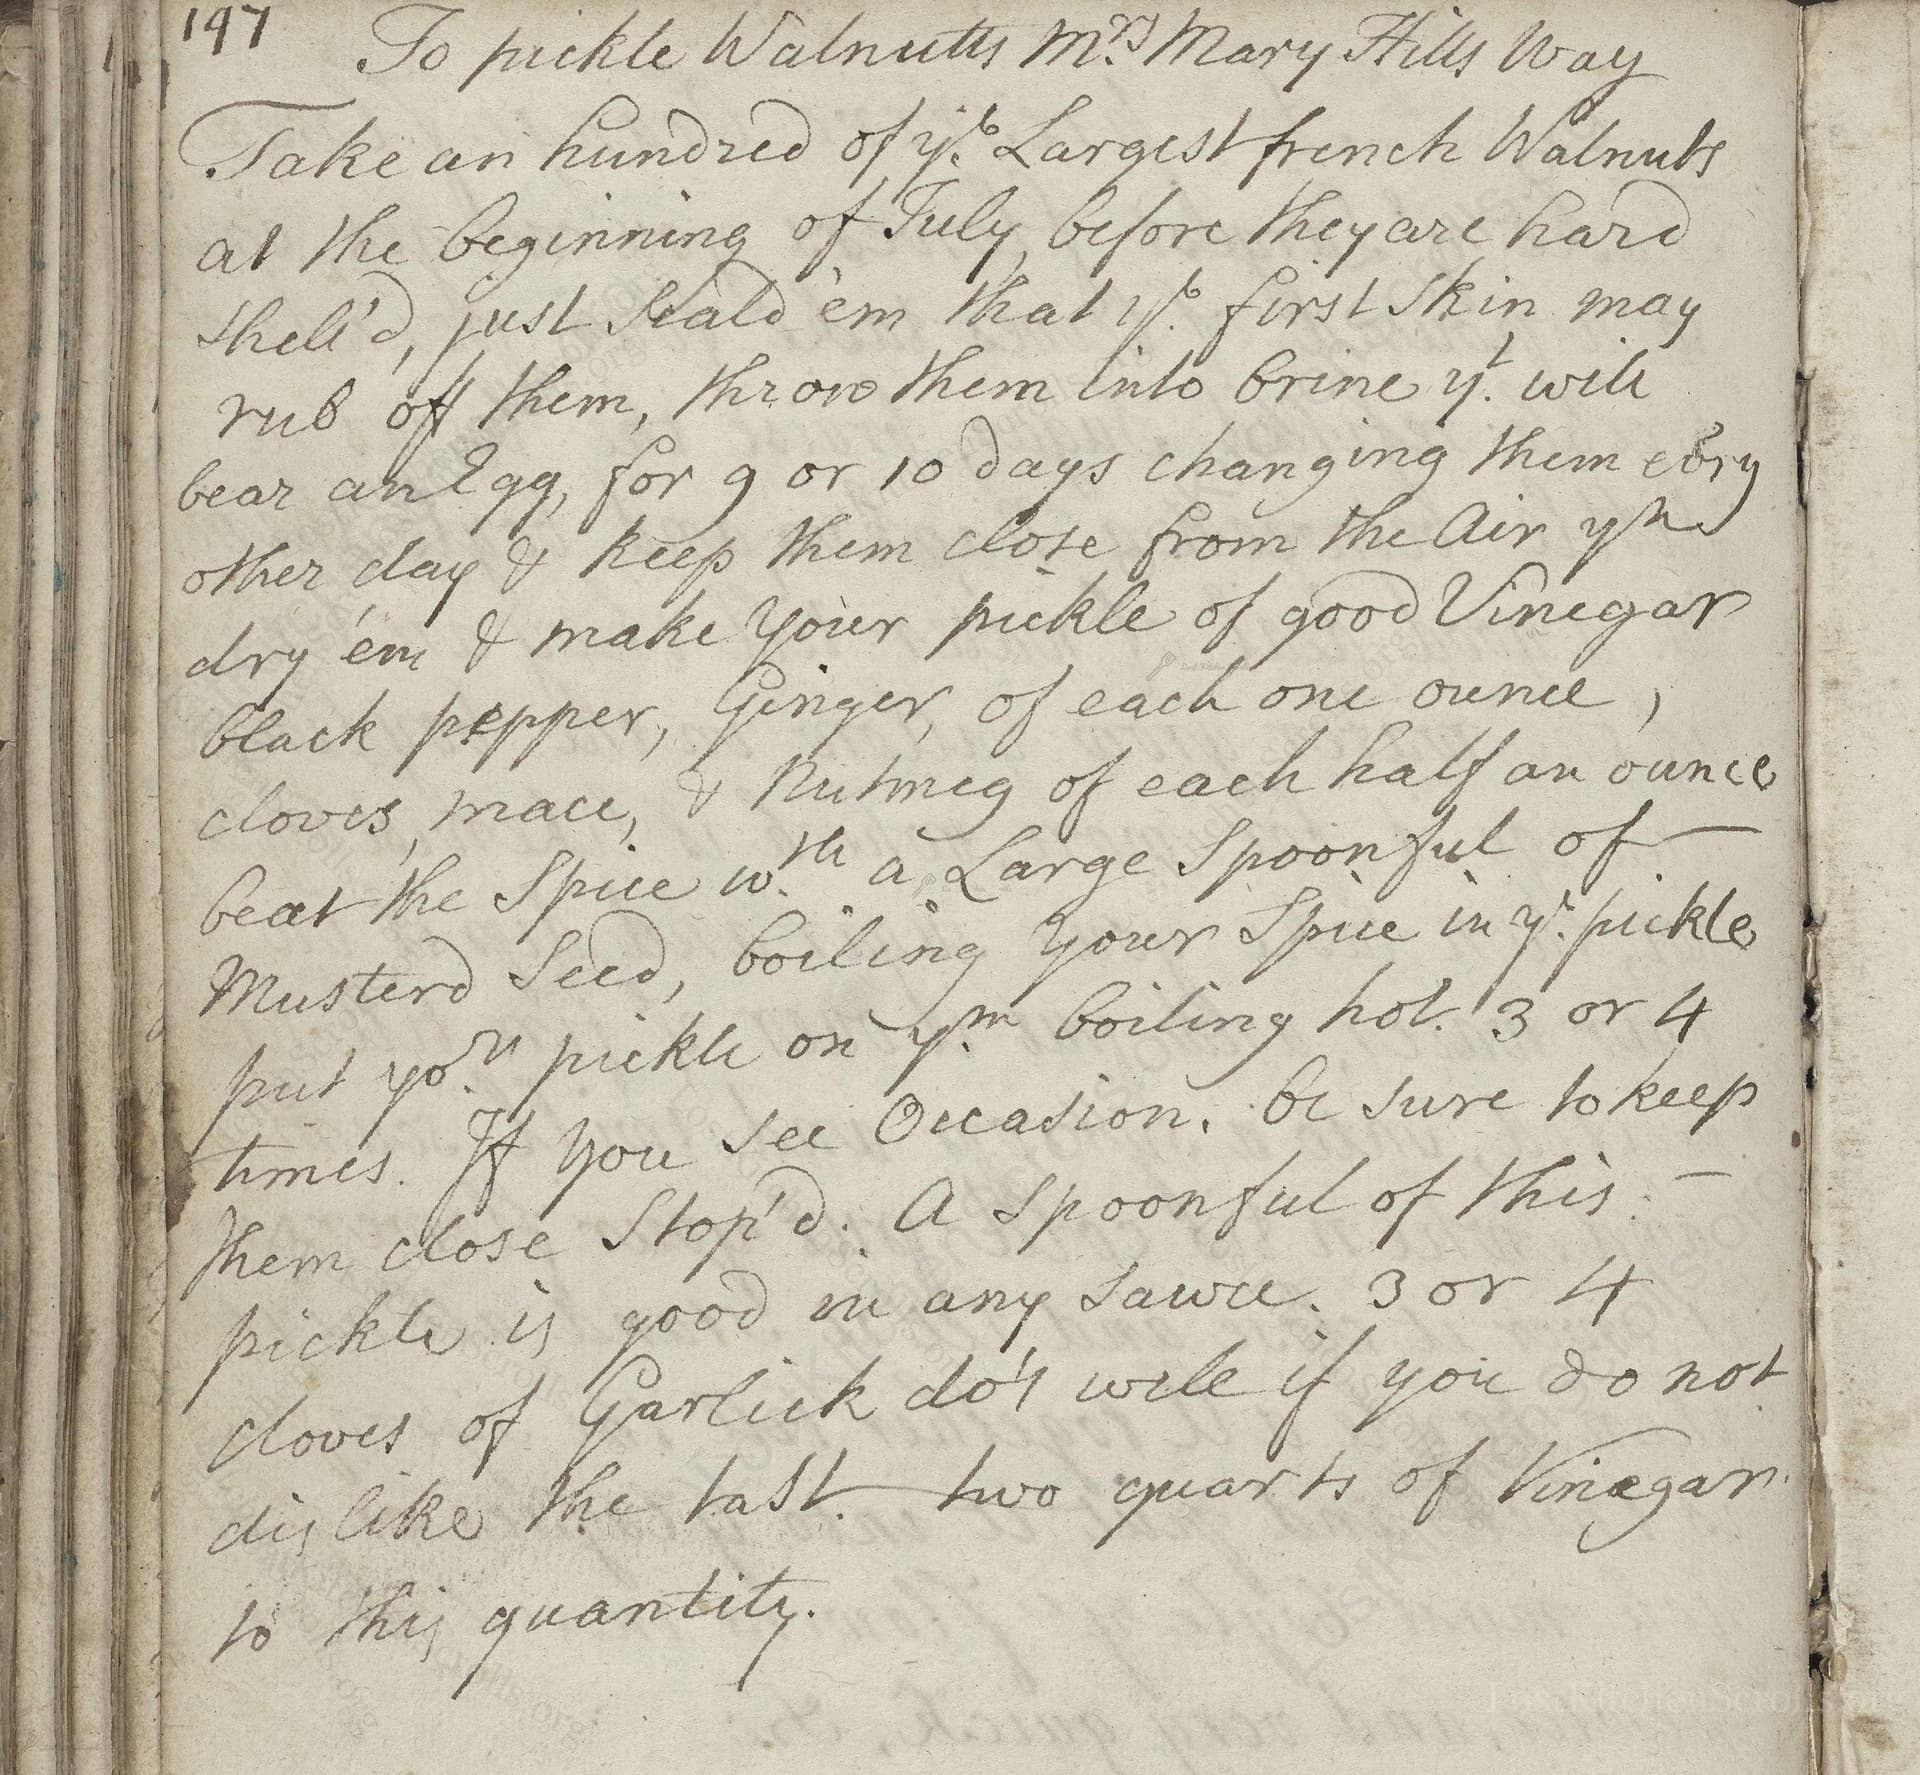 197
To pickle Walnutts Mrs. Mary Hills Way
Take an hundred of ye. Largest french Walnuts
at the beginning of July, before they are hard
shell'd, just scald 'em that ye. first skin may
rub off them, throw them into brine yt. will
bear an Egg, for 9 or 10 days changing them evry
other day & keep them close from the Air yn
dry 'em & make your pickle of good Vinegar
black pepper, Ginger, of each one ounce,
cloves, mace, & Nutmeg of each half an ounce
beat the Spice wth. a Large Spoonful of
Musterd Seed, boiling your Spice in yr. pickle
put yor. pickle on ym. boiling hot. 3 or 4
times. If you see Occasion. be sure to keep
them close Stop'd. A spoonful of this
pickle is good in any sawce. 3 or 4
cloves of Garlick do's well if you do not
dislike the tast. two quarts of Vinegar
to this quantity.